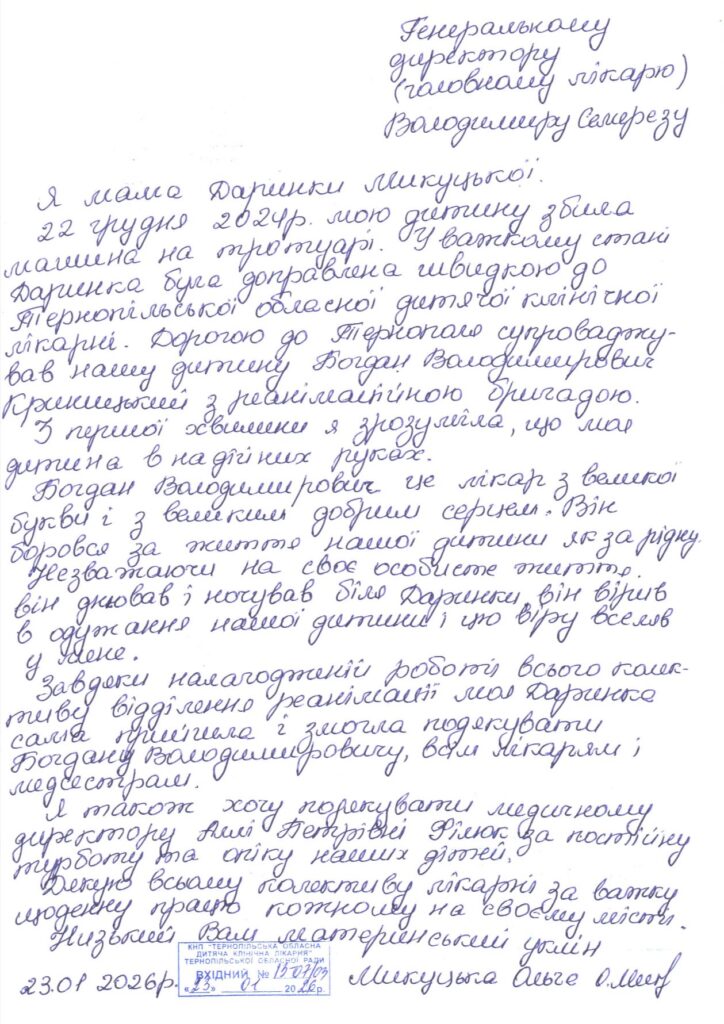 Генеральному
директору
(головному лікарю)
Володимиру Семерезу
Я мама Даринки Микуцької.
22 грудня 2024р. мою дитину збила
машина на тротуарі. У важкому стані
Даринка була доправлена швидкою до
Тернопільської обласної дитячої клінічної
лікарні. Дорогою до Тернополя супроваджу-
вав нашу дитину Богдан Володимирович
Криницький з реанімаційною бригадою.
З першої хвилини я зрозуміла, що моя
дитина в надійних руках.
Богдан Володимирович це лікар з великої
букви і з великим добрим серцем. Він
боровся за життя нашої дитини як за рідну.
Незважаючи на своє особисте життя,
він днював і ночував біля Даринки, він вірив
в одужання нашої дитини і цю віру вселяв
у мене.
Завдяки налагодженій роботі всього колек-
тиву відділення реанімації моя Даринка
сама прийшла і змогла подякувати
Богдану Володимировичу, всім лікарям і
медсестрам.
Я також хочу подякувати медичному
директору Аллі Петрівні Фімюк за постійну
турботу та опіку наших дітей.
Дякую всьому колективу лікарні за важку
щоденну працю кожному на своєму місті.
Низький Вам материнський уклін
23.01 2026р. Микуцька Ольга
КНП "ТЕРНОПІЛЬСЬКА ОБЛАСНА
ДИТЯЧА КЛІНІЧНА ЛІКАРНЯ"
ТЕРНОПІЛЬСЬКОЇ ОБЛАСНОЇ РАДИ
ВХІДНИЙ № 15-07/03
«23» 01 2026р.